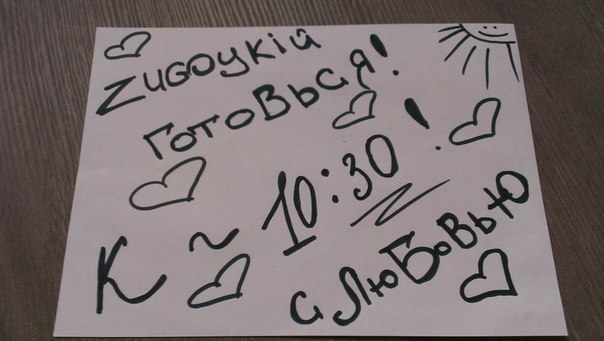 Zидоукій
готовься!
К ~ 10:30!
с любовью